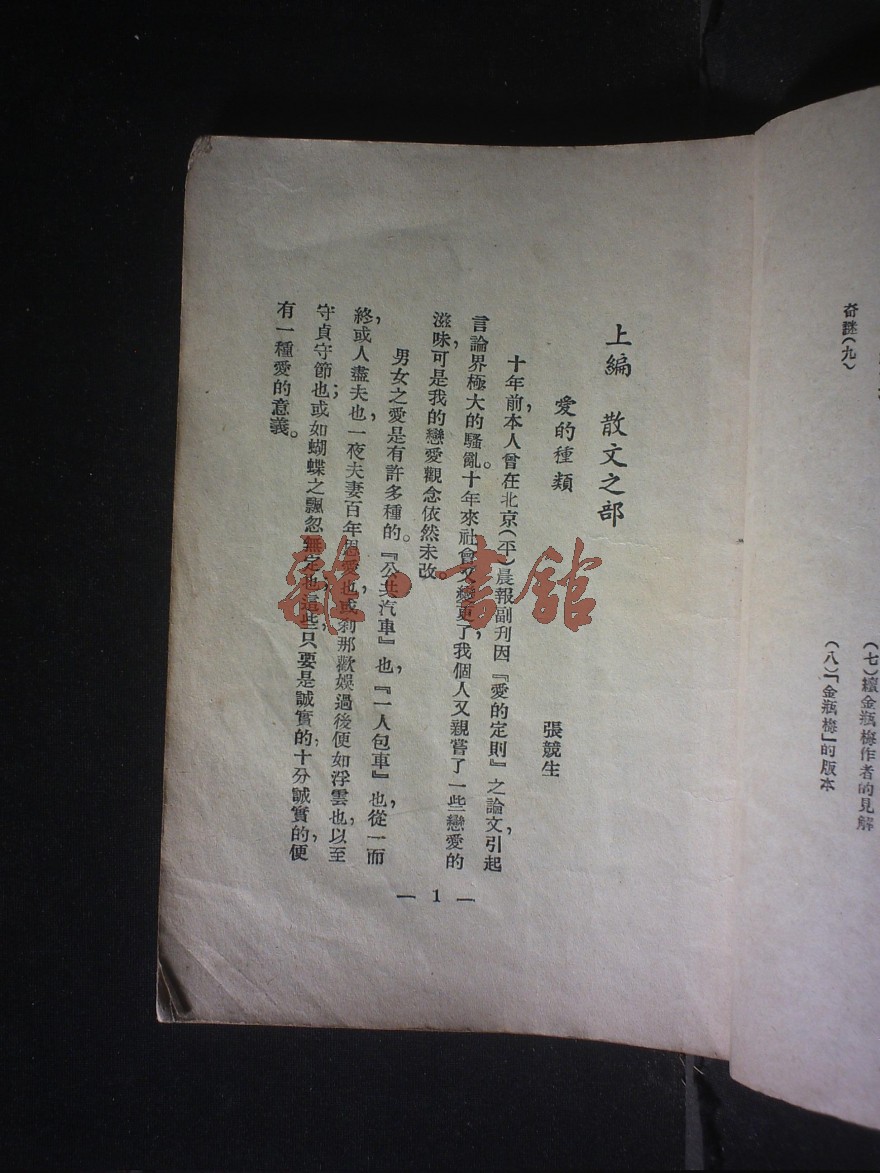 奇謎(九)
(七)續金瓶梅作者的見解
(八)「金瓶梅」的版本
上編 散文之部
愛的種類
張競生
十年前,本人曾在北京(平)晨報副刊因『愛的定則』之論文,引起
言論界極大的騷亂。十年來社會又變更了,我個人又親嘗了一些戀愛的
滋味,可是我的戀愛觀念依然未改。
男女之愛是有許多種的。『公共汽車』也,『一人包車』也,從一而
終,或人盡夫也,一夜夫妻百年恩愛也,或刹那歡娛過後便如浮雲也,以至
守貞守節也;或如蝴蝶之飄忽無定也,這些只要是誠實的,十分誠實的,便
有一種愛的意義。
— 1 —
雜·書館